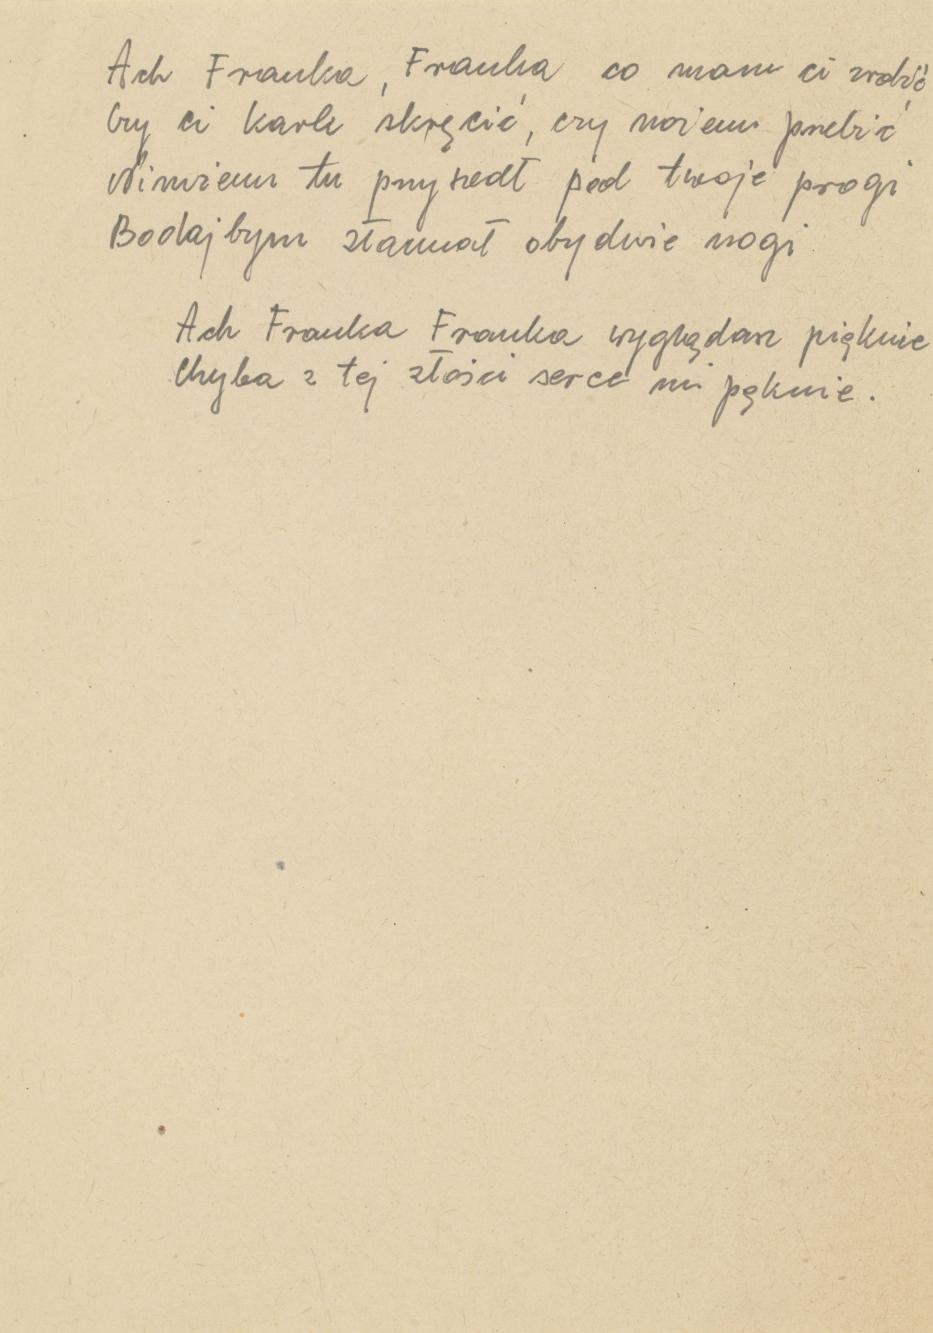 Ach Franka, Franka co mam ci zrobić
Czy ci kark skręcić, czy nożem przebić
Nimżem tu przyszedł pod twoje progi
Bodajbym złamał obydwie nogi
Ach Franka Franka wyglądasz pięknie
Chyba z tej złości serce mi pęknie.